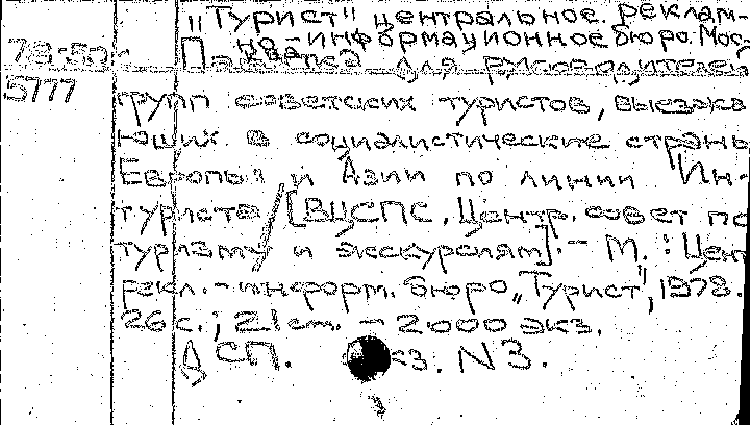 "Турист" центральное реклам-
но-информационное бюро. Мос-
ква
78-52
5777
Памятка для руководителей
групп советских туристов, выезжа
ющих в социалистические страны
Европы и Азии по линии "Ин-
туриста / [ВЦСПС, Центр. совет по
туризму и экскурсиям]. - М. : Цен
рекл.-информ. бюро „Турист", 1978.
26 с. ; 21 см. - 2000 экз.
ДСП. кз. N3.